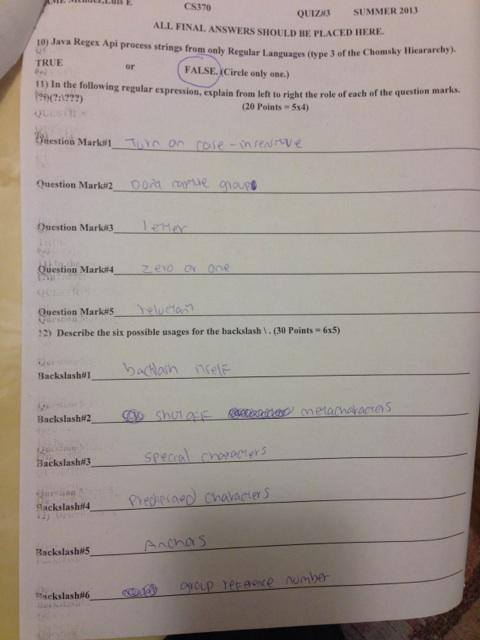 CS370 QUIZ#3 SUMMER 2013
ALL FINAL ANSWERS SHOULD BE PLACED HERE.
10) Java Regex Api process strings from only Regular Languages (type 3 of the Chomsky Hieararchy).
TRUE or FALSE. (Circle only one.)
11) In the following regular expression, explain from left to right the role of each of the question marks.
(20 Points = 5x4)
Question Mark#1 Turn on case-insensitive
Question Mark#2 Dont capture group
Question Mark#3 letter
Question Mark#4 zero or one
Question Mark#5 reluctant
12) Describe the six possible usages for the backslash \ . (30 Points = 6x5)
Backslash#1 backlash itself
Backslash#2 shut off metacharacters
Backslash#3 special characters
Backslash#4 Predefined characters
Backslash#5 Anchors
Backslash#6 group reference number